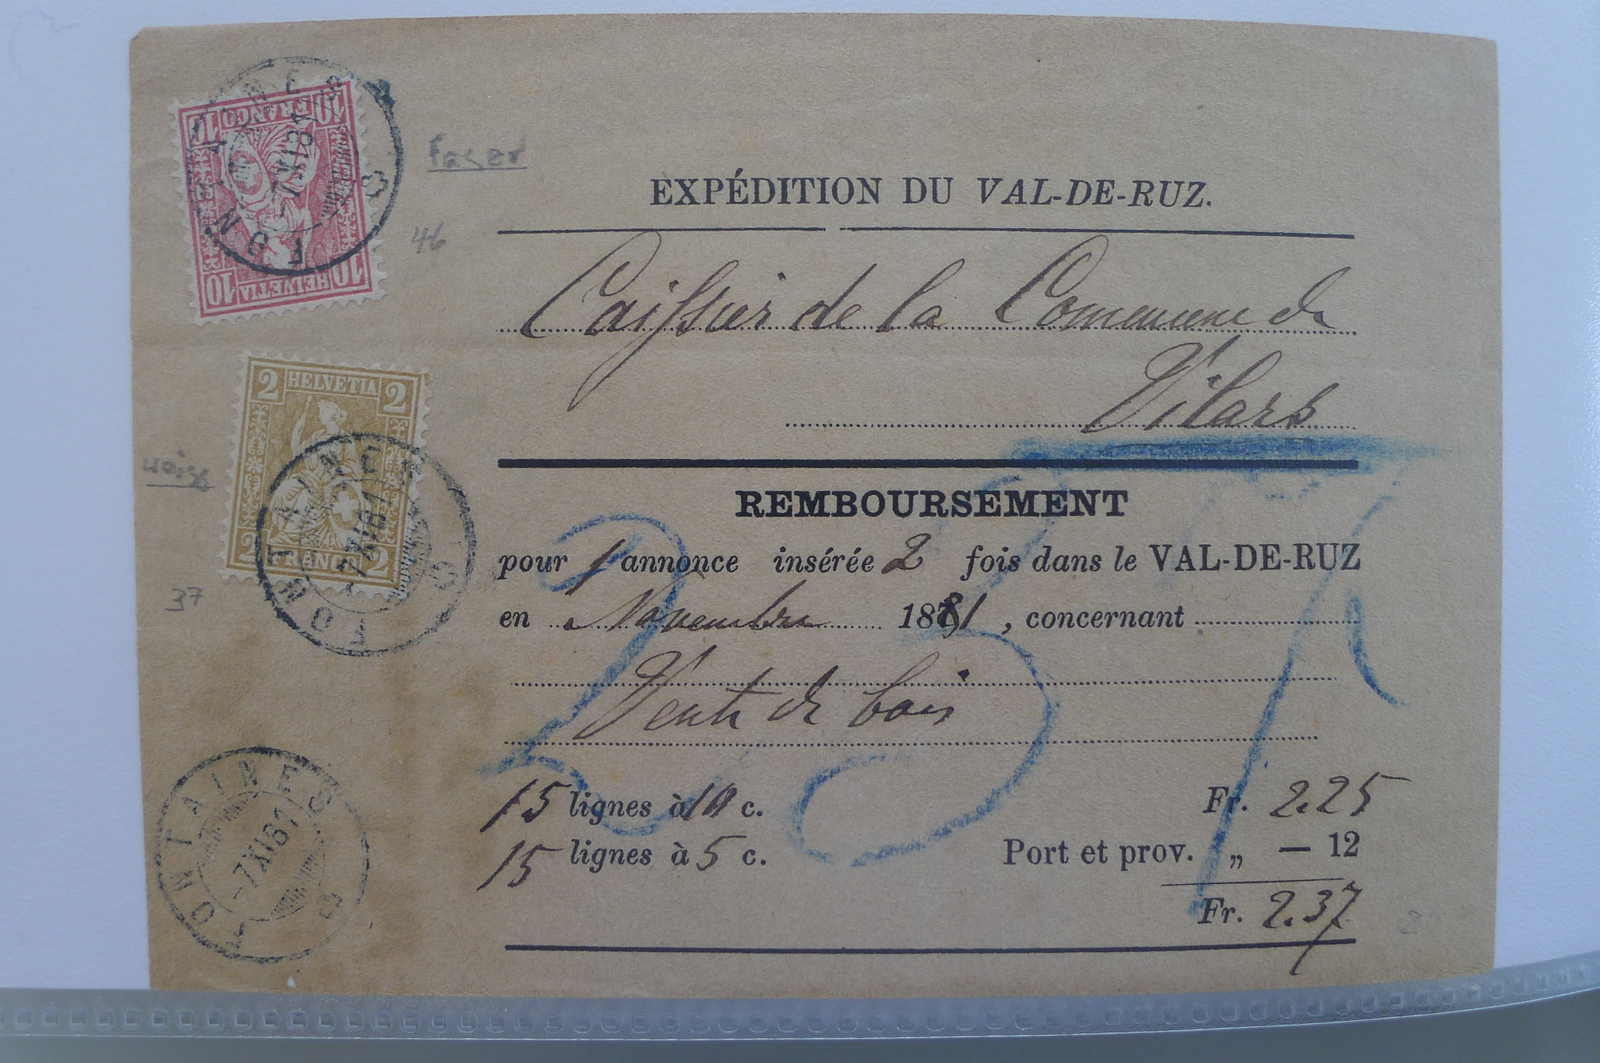 10 FRANCO 10
10 HELVETIA 10
Faser
46
EXPÉDITION DU VAL-DE-RUZ.
Caissier de la Commune de
Vilars
2 HELVETIA 2
2 FRANCO 2
FONTAINES
-7 XI 81
37
REMBOURSEMENT
pour 1 annonce insérée 2 fois dans le VAL-DE-RUZ
en Novembre 1881, concernant
Vente de bois
237
15 lignes à 10 c. Fr. 2.25
15 lignes à 5 c. Port et prov. „ — 12
Fr. 2.37
FONTAINES
-7 XI 81